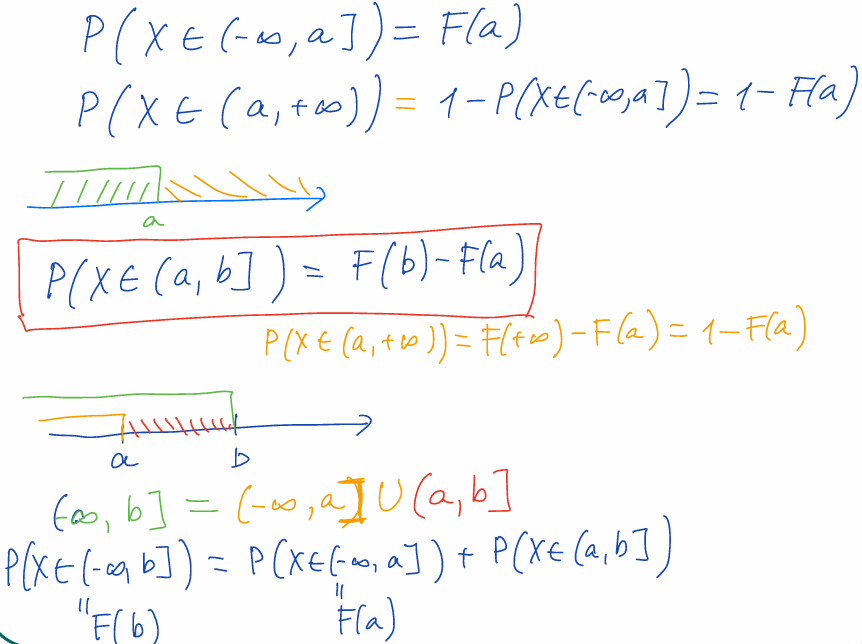 P(X ∈ (-∞, a]) = F(a)
P(X ∈ (a, +∞)) = 1 - P(X ∈ (-∞, a]) = 1 - F(a)
a
P(X ∈ (a, b]) = F(b) - F(a)
P(X ∈ (a, +∞)) = F(+∞) - F(a) = 1 - F(a)
a b
(-∞, b] = (-∞, a] ∪ (a, b]
P(X ∈ (-∞, b]) = P(X ∈ (-∞, a]) + P(X ∈ (a, b])
" "
F(b) F(a)